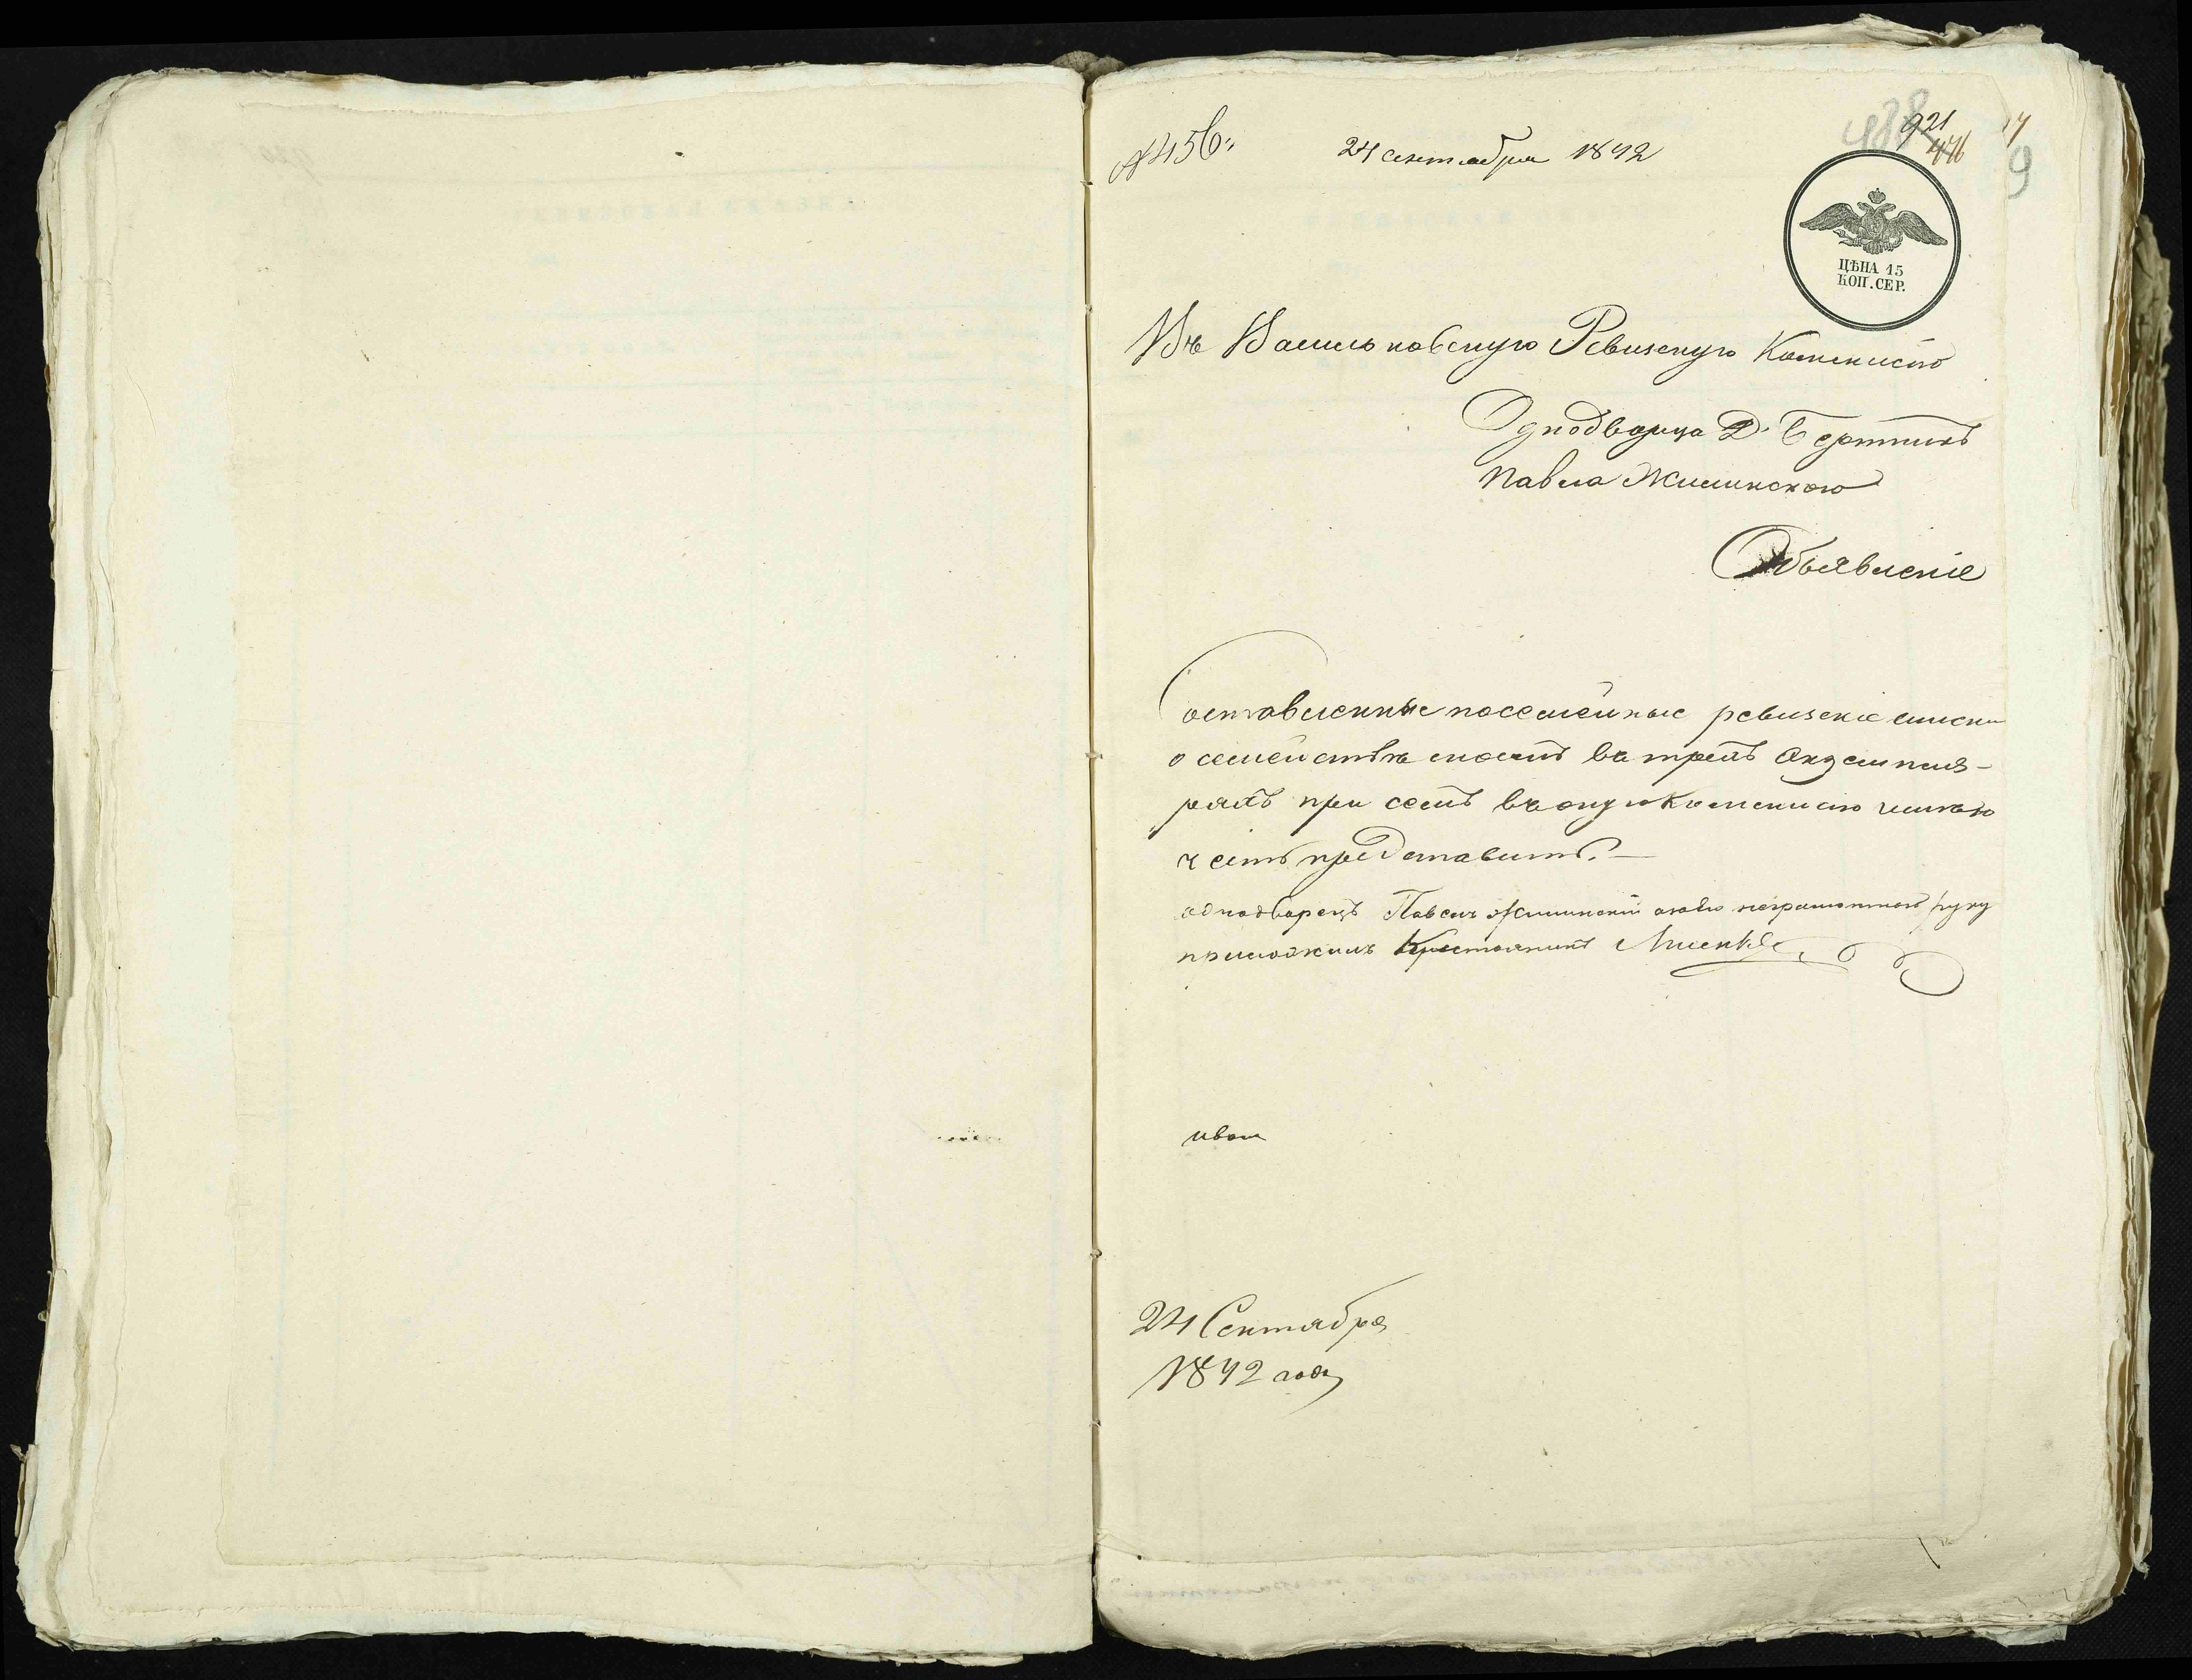 № 456
24 сентября 1842
921
476
9
ЦѢНА 15
КОП. СЕР.
Въ Васильковскую Ревизскую Коммисію
Однодворца Д.
Павла Жилинского
Объявленіе
Составленные посемейные ревизскіе списки
о семействѣ моемъ въ трехъ Экземпля-
рахъ при семъ въ оную Коммисію имѣю
честь представить. —
однодворецъ Павелъ Жилинский неграмотный руку
приложилъ Крестоянинъ
иван
24 Сентября
1842 года